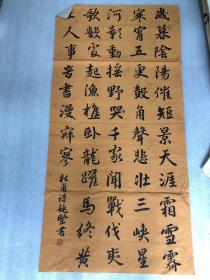 歲暮陰陽催短景天涯霜雪霽
寒宵五更鼓角聲悲壯三峽星
河影動摇野哭千家聞戰伐夷
歌數處起漁樵臥龍躍馬終黄
人事音書漫寂寥
杜甫詩